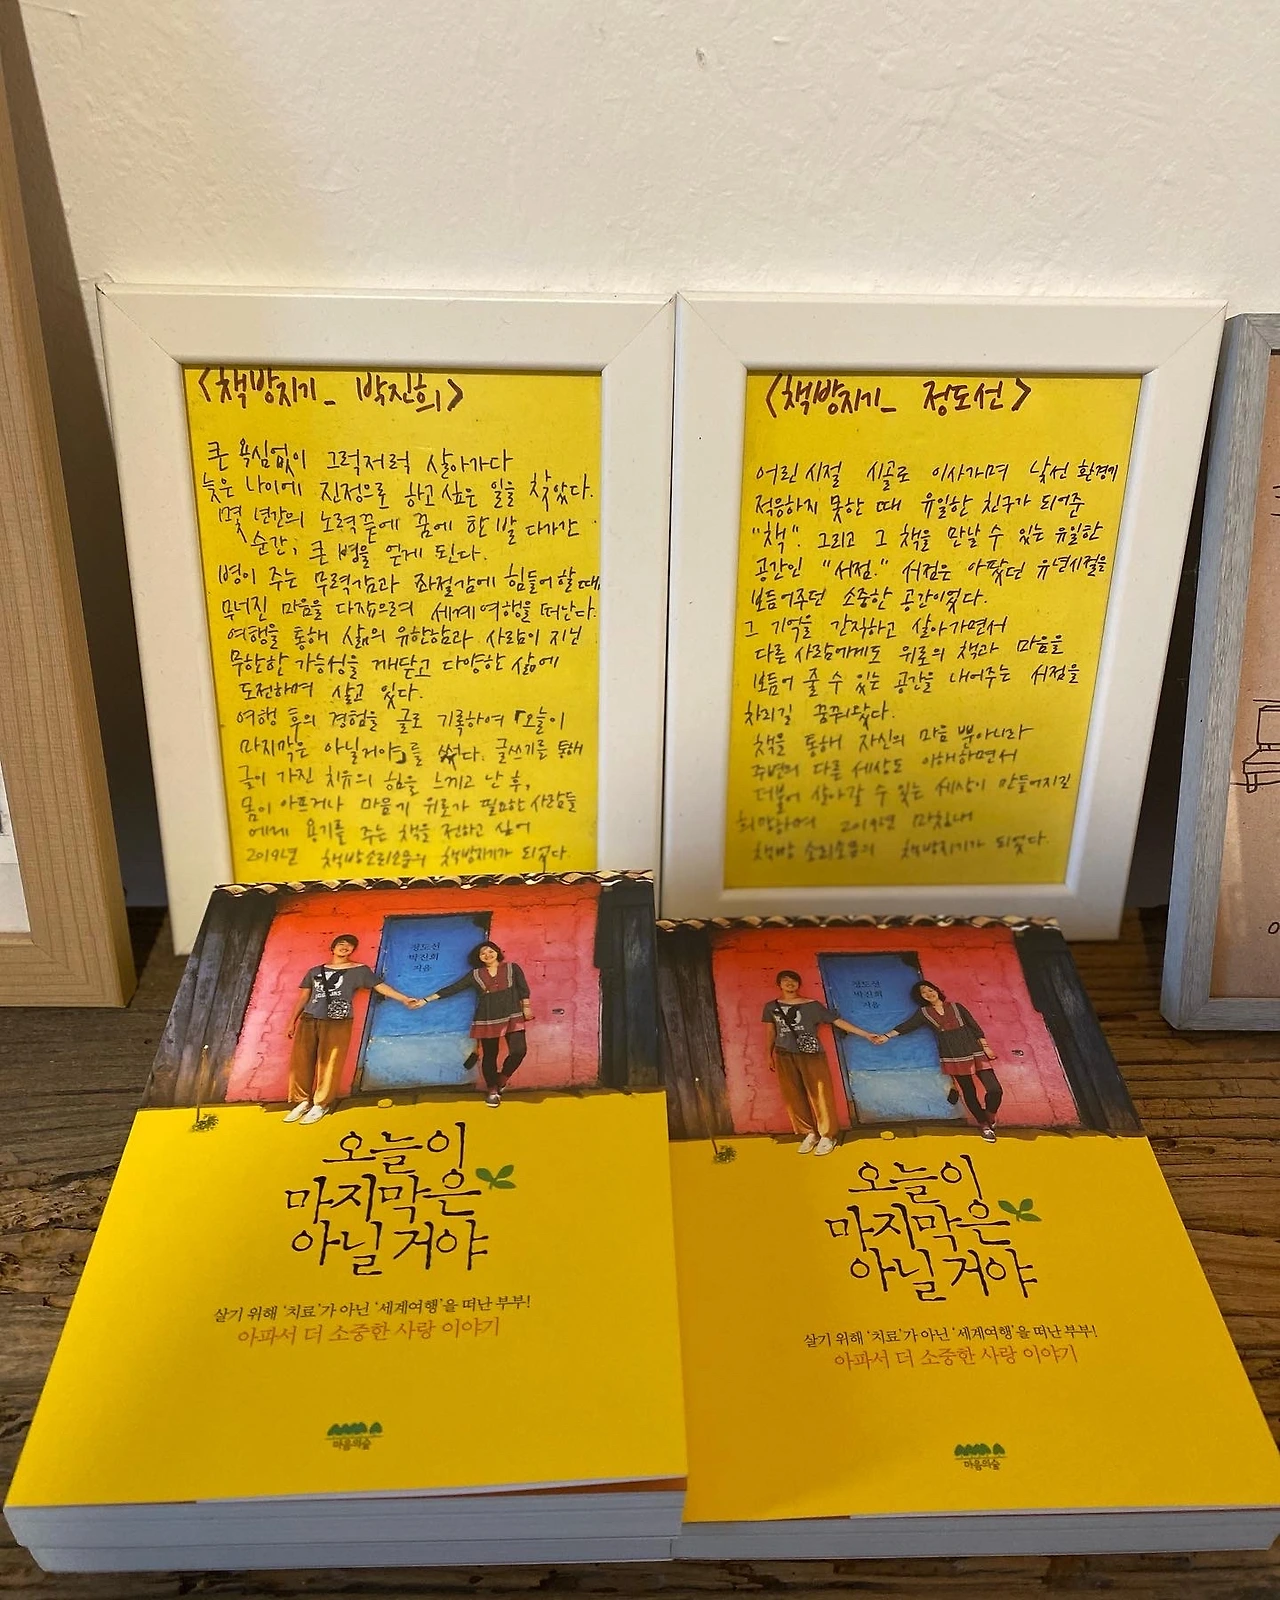 <책방지기_ 박진희>
큰 욕심없이 그럭저럭 살아가다
늦은 나이에 진정으로 하고싶은 일을 찾았다.
몇 년간의 노력끝에 꿈에 한 발 다가간
순간, 큰 병을 얻게 된다.
병이 주는 무력감과 좌절감에 힘들어 할 때,
무너진 마음을 다잡으려 세계여행을 떠난다.
여행을 통해 삶의 유한함과 사람이 지닌
무한한 가능성을 깨닫고 다양한 삶에
도전하며 살고 있다.
여행 후의 경험을 글로 기록하여 「오늘이
마지막은 아닐거야」를 썼다. 글쓰기를 통해
글이 가진 치유의 힘을 느끼고 난 후,
몸이 아프거나 마음가 위로가 필요한 사람들
에게 용기를 주는 책을 전하고 싶어
2019년 책방소리소문의 책방지기가 되었다.
<책방지기_ 정도선>
어린 시절 시골로 이사가며 낯선 환경에
적응하지 못한 때 유일한 친구가 되어준
"책". 그리고 그 책을 만날 수 있는 유일한
공간인 "서점." 서점은 아팠던 유년시절을
보듬어주던 소중한 공간이었다.
그 기억을 간직하고 살아가면서
다른 사람에게도 위로의 책과 마음을
보듬어 줄 수 있는 공간을 내어주는 서점을
차리길 꿈꿔왔다.
책을 통해 자신의 마음 뿐아니라
주변의 다른 세상도 이해하면서
더불어 살아갈 수 있는 세상이 만들어지길
희망하며 2019년 마침내
책방 소리소문의 책방지기가 되었다.
정도선
박진희
지음
오늘이
마지막은
아닐 거야
살기 위해 '치료'가 아닌 '세계여행'을 떠난 부부!
아파서 더 소중한 사랑 이야기
마음의숲
정도선
박진희
지음
오늘이
마지막은
아닐 거야
살기 위해 '치료'가 아닌 '세계여행'을 떠난 부부!
아파서 더 소중한 사랑 이야기
마음의숲